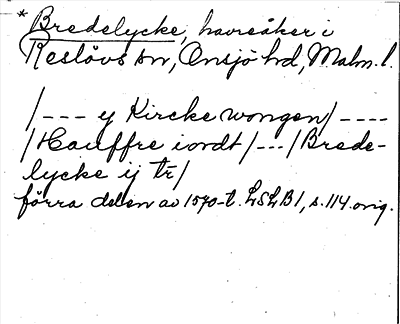 * Bredelycke, havreåker i
Reslövs sn, Onsjö hd, Malm. l.
/--- y Kircke wongen/ ----
/Hauffre iordt/---/Brede-
lycke ij tr/
förra delen av 1570-t. LSLB1, s. 114. orig.